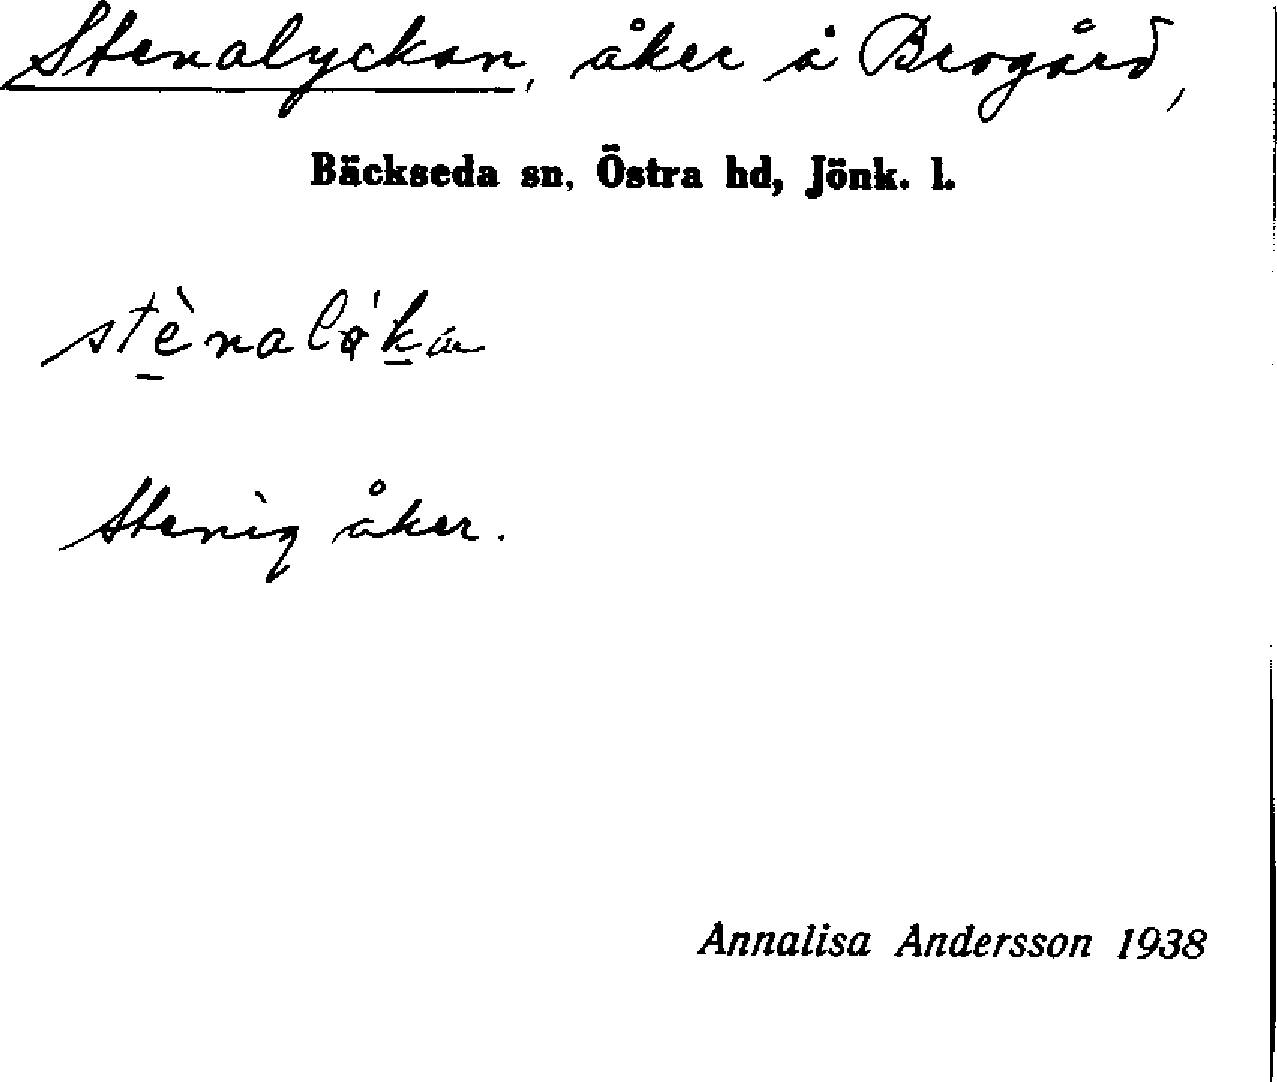 Stenalyckan, åker å Brogård,
Bäckseda sn, Östra hd, Jönk. l.
Stenig åker.
Annalisa Andersson 1938